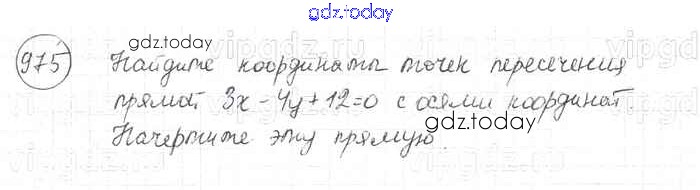 gdz.today
975 Найдите координаты точек пересечения
gdz.today
прямой 3x - 4y + 12 = 0 с осями координат
Начертите эту прямую
gdz.today